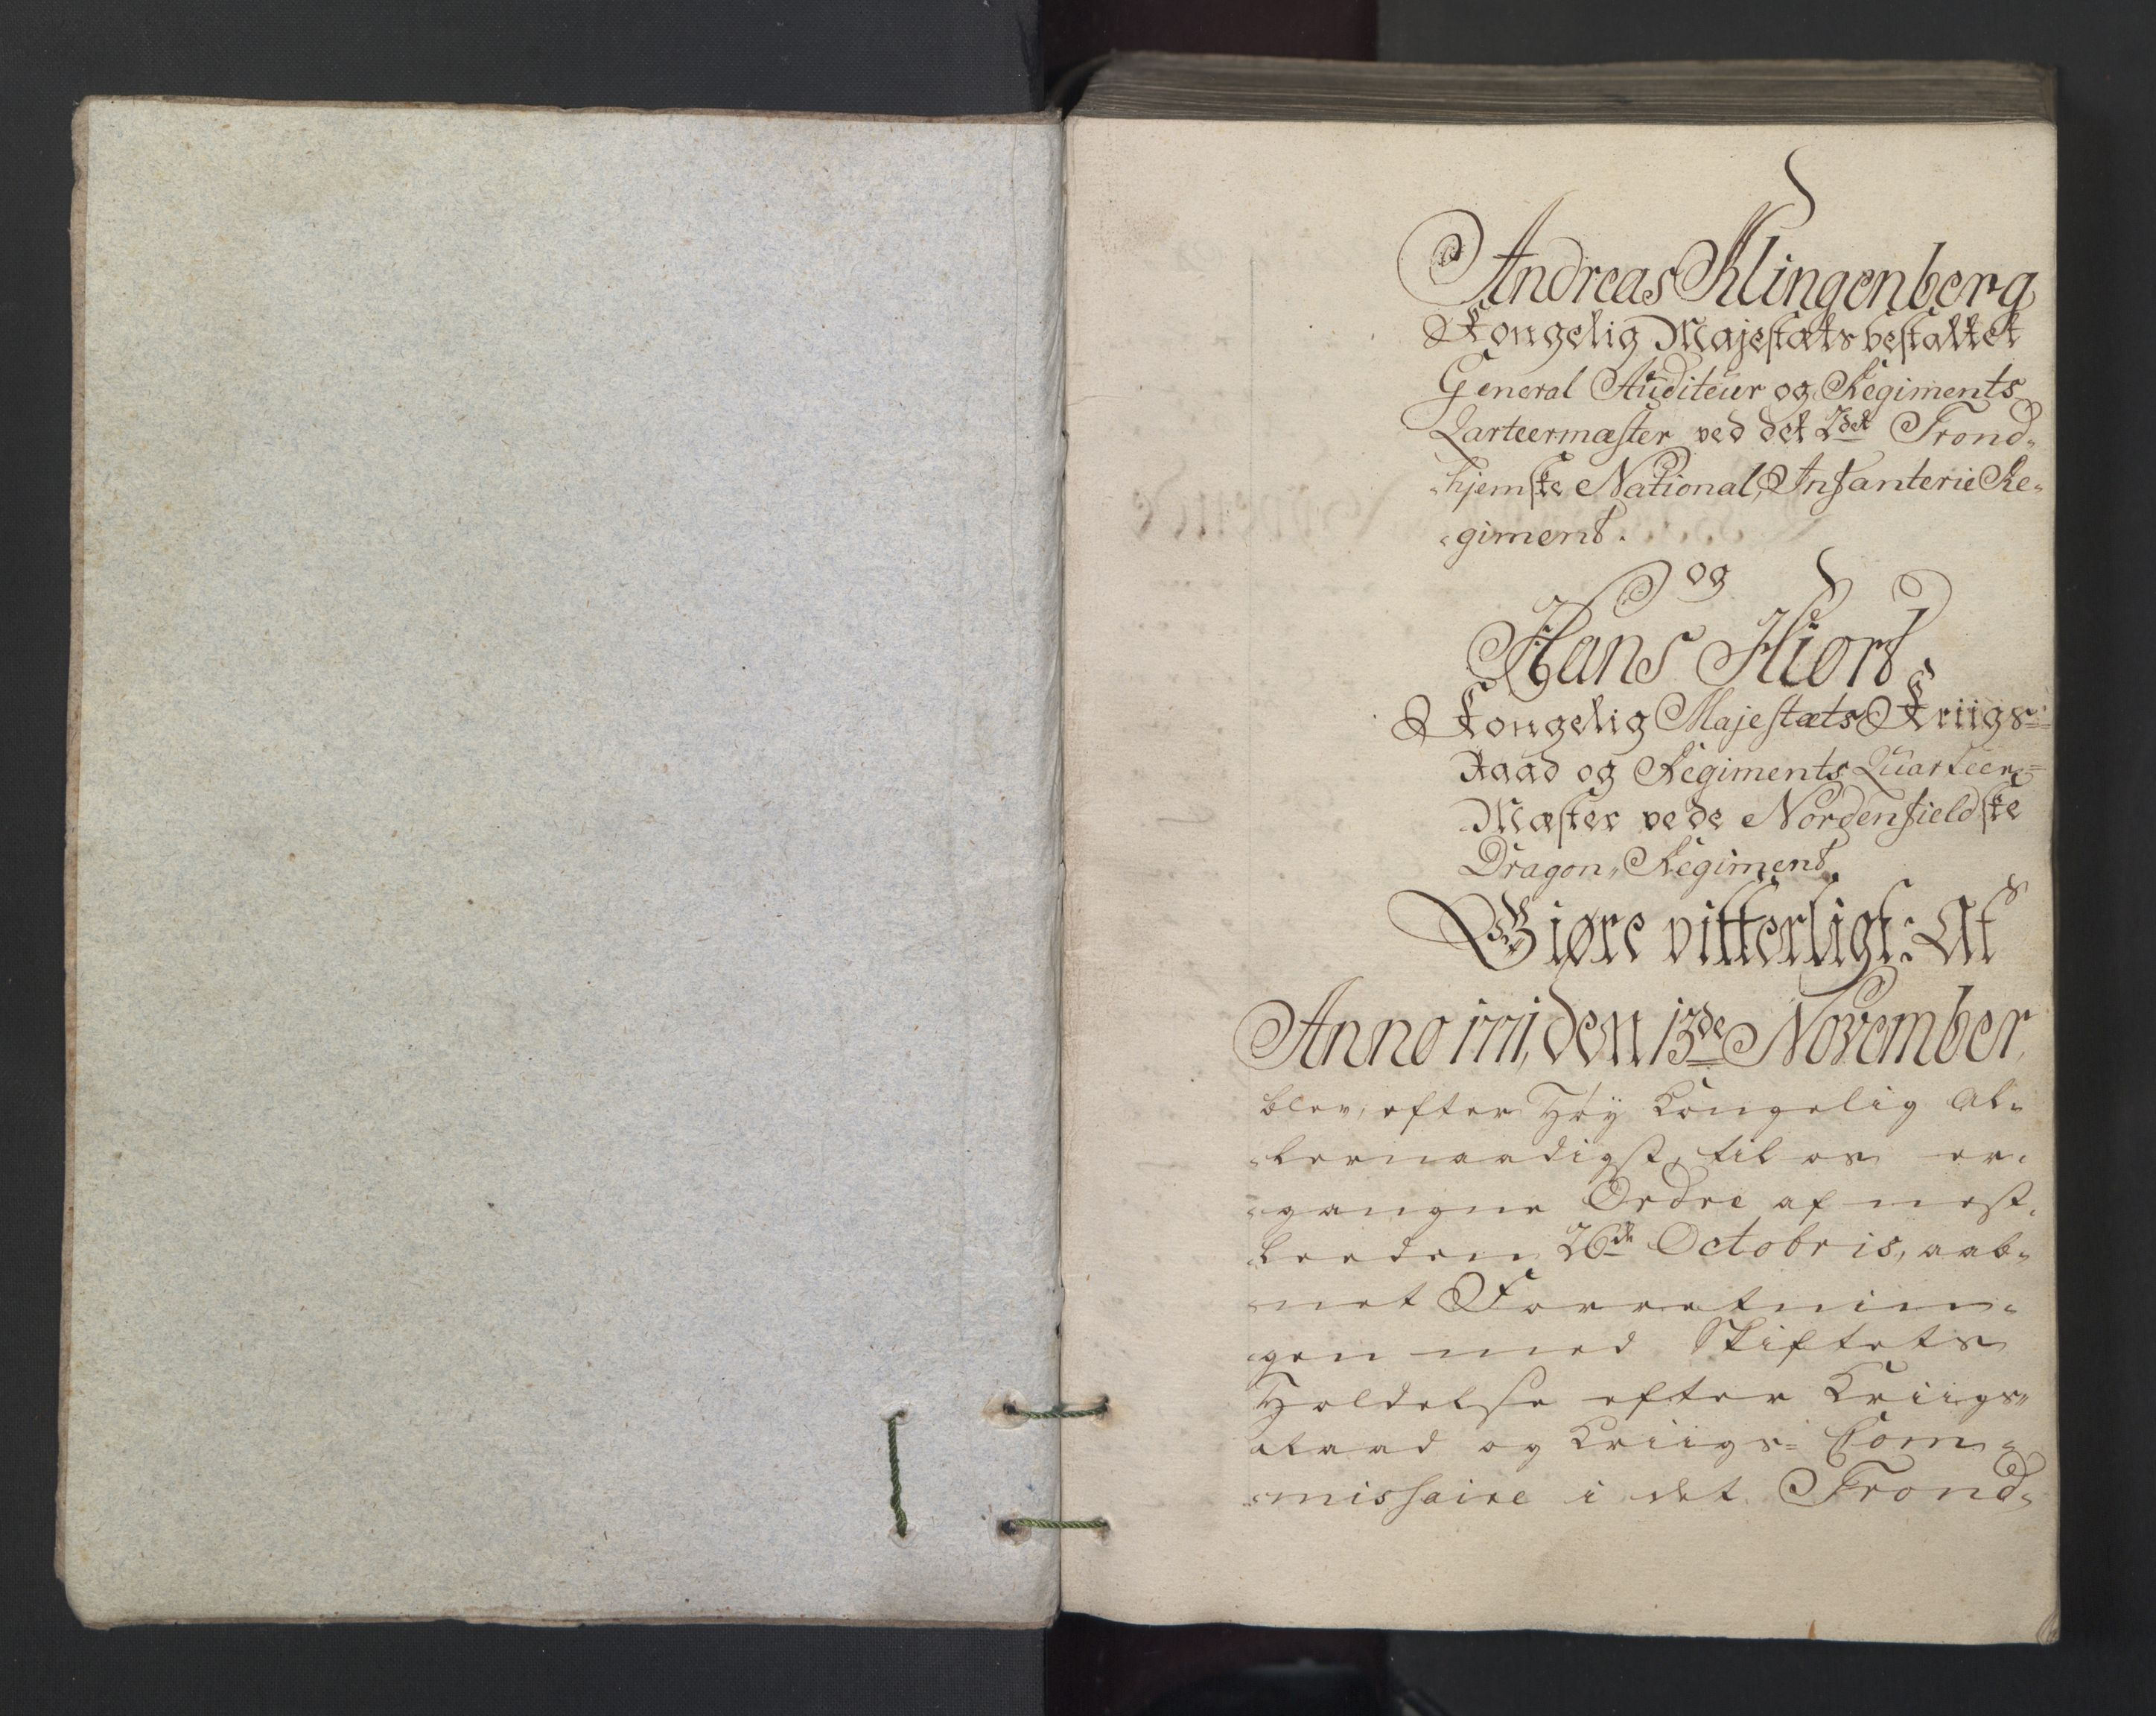 Andreas Klingenberg
Kongelig Majestæts bestaltet
General Auditeur og Regiments
Qarteermæster ved det 2det Trond„
„hjemske National, Infanterie Re„
„giment.
og
Hans Hiort
Kongelig Majestæts Kriigs=
Raad og Regiments Quarteer=
Mæster ved de Nordenfieldske
Dragon„ Regiment.
Giøre vitterligt: At
Anno 1771, den 13de November
blev, efter Høy Kongelig Al„
„lernaadigst, til os er„
„gangne Ordre af nest„
leeden 26de Octobris, aab„
„net Forretnin„
„gen med Skiftets
Holdelse efter Kriigs„
„Raad og Kriigs= Com„
„missaire i det Trond„